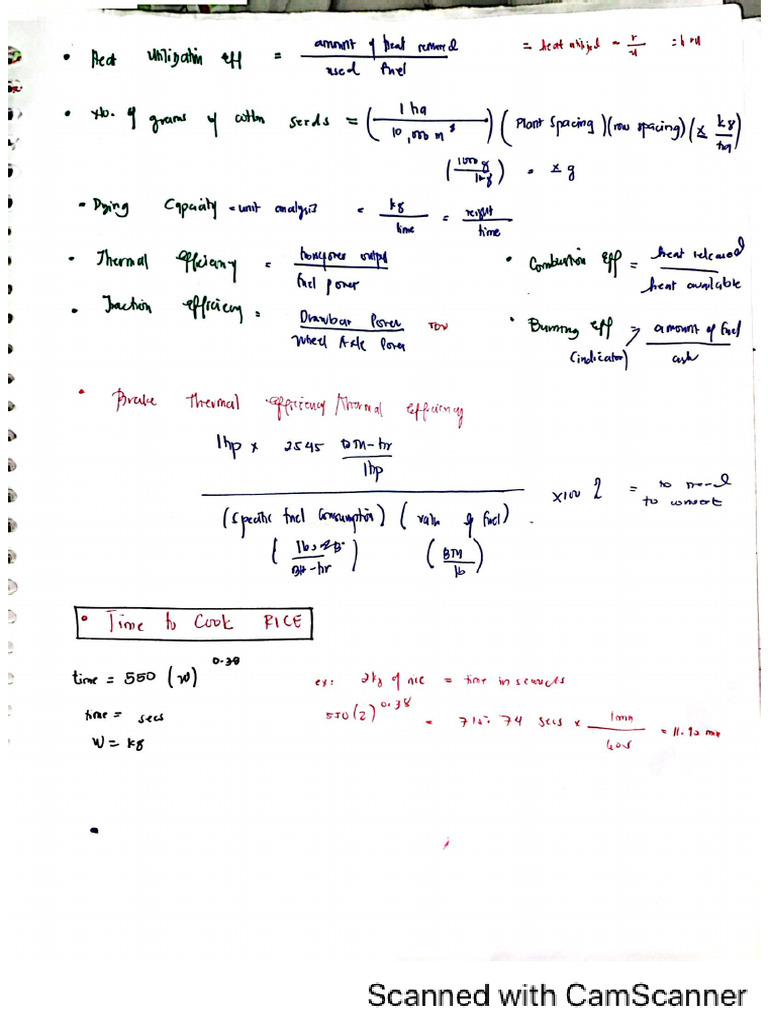 • Heat Utilization eff = amount of heat removed / used fuel = heat utilized
• No. of grams of cotton seeds = (1 ha / 10,000 m²) (Plant Spacing) (row spacing) (x kg/ha)
(1000 g / 1 kg) = x g
• Drying Capacity = unit analysis = kg / time = weight / time
• Thermal efficiency = horsepower output / fuel power
• Combustion eff = heat released / heat available
• Traction efficiency = Drawbar Power / Wheel Axle Power
• Burning eff (indicator) → amount of fuel / ash
• Brake thermal efficiency / thermal efficiency
1hp x 2545 BTU-hr / 1hp
(Specific fuel Consumption) (value of fuel) x100 = no need to convert
(lbs / BH-hr) (BTU / lb)
• Time to Cook RICE
time = 550 (w)^0.38
ex: 2kg of rice = time in seconds
time = secs
550(2)^0.38 = 715.74 secs x 1min / 60s = 11.92 min
W = kg
Scanned with CamScanner